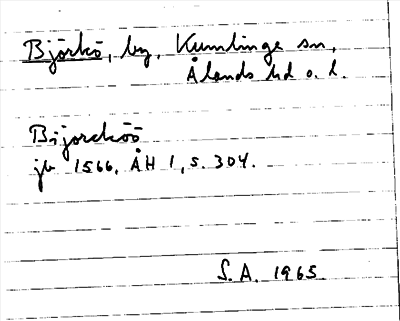 Björkö, by, Kumlinge sn,
Ålands hd o. l.
Bijorcköö
jb 1566, ÅH 1, s. 304.
S.A. 1965.